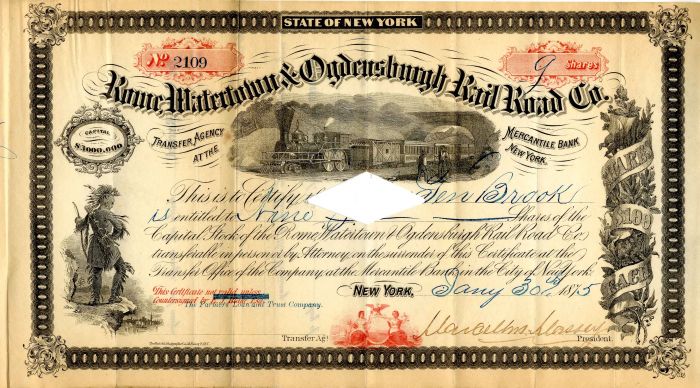 STATE OF NEW YORK
No 2109
9 Shares
Rome, Watertown & Ogdensburgh Rail Road Co.
CAPITAL
$3000.000
TRANSFER AGENCY
AT THE
MERCANTILE BANK
NEW YORK.
This is to Certify Ten Brook
is entitled to Nine Shares of the
Capital Stock of the Rome Watertown & Ogdensburgh Rail Road Co.
transferable in person or by Attorney, on the surrender of this Certificate at the
Transfer Office of the Company, at the Mercantile Bank in the City of New York
SHARES
$100
EACH
This Certificate not valid unless
Countersigned by
The Farmers' Loan and Trust Company.
NEW YORK, Jany 30th 1875
Transfer Agt
President.